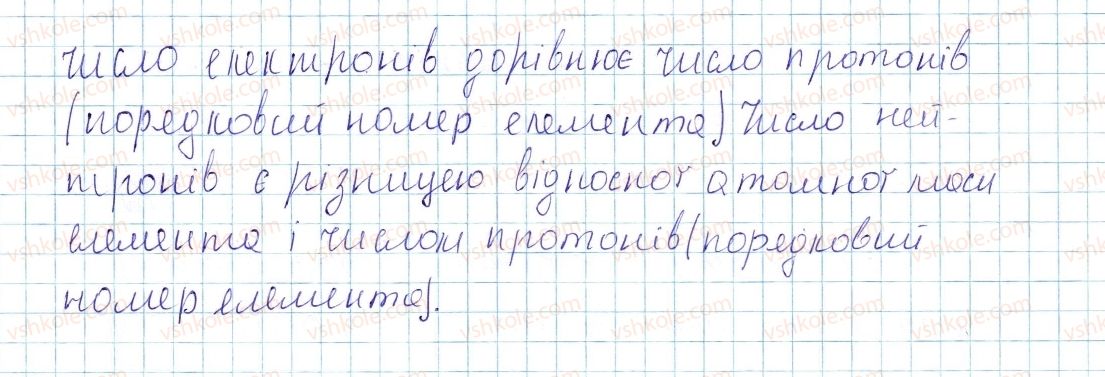 число електронів дорівнює число протонів
(порядковий номер елемента) Число ней-
тронів є різницею відносної атомної маси
елемента і числом протонів (порядковий
номер елемента).